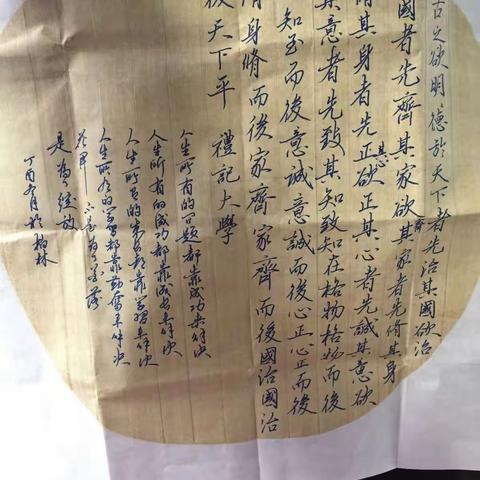 古之欲明々德於天下者先治其國欲治
國者先齊其家欲齊其家者先脩其身
脩其身者先正其心欲正其心者先誠其意欲
其意者先致其知致知在格物格物而後
知至而後意誠意誠而後心正心正而後
身脩而後家齊家齊而後國治國治
後天下平 禮記大學
人生所有的问题都靠成功来解决
人生所有的成功都靠成长来解决
人生所有的成长都靠学習来解决
人生所有的学習都靠勤奮来解决
不是为了
是为了绽放
丁酉月於林